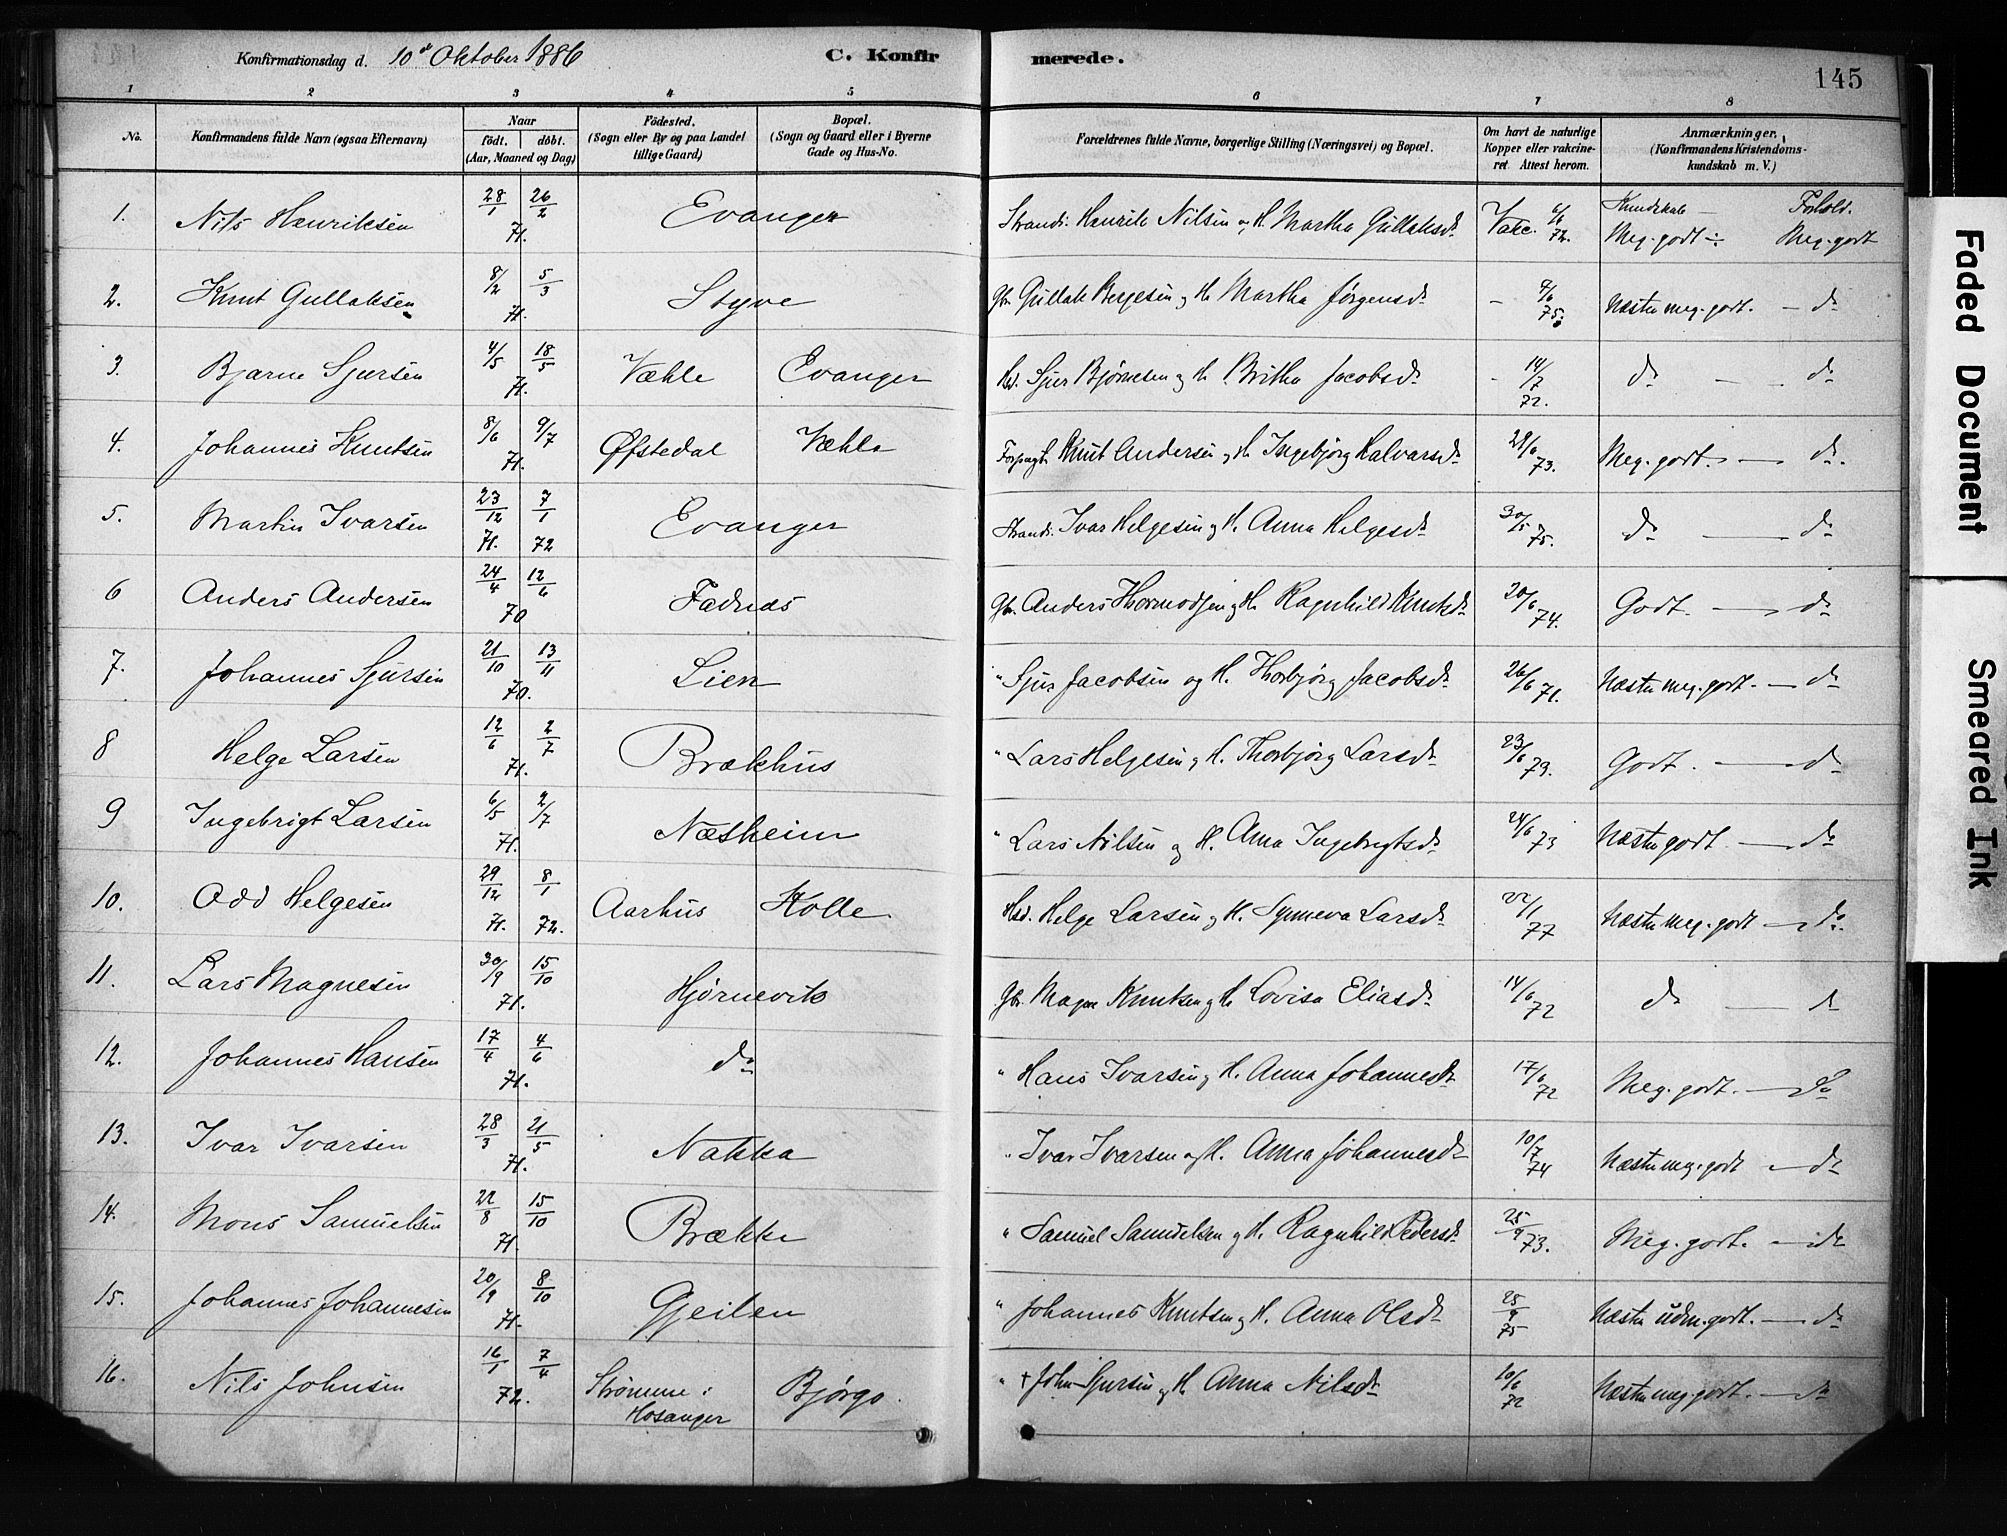 Konfirmationsdag d. 10de Oktober 1886
C. Konfirmerede.
145
1 2 3 4 5 6 7 8
No. Konfirmandens fulde Navn (ogsaa Efternavn) Naar født. døbt. (Aar, Maaned og Dag) Fødested. (Sogn eller By og paa Landet tillige Gaard) Bopæl. (Sogn og Gaard eller i Byerne Gade og Hus-No. Forældrenes fulde Navne, borgerlige Stilling (Næringsvei) og Bopæl. Om havt de naturlige Kopper eller vakcineret. Attest herom. Anmærkninger. (Konfirmandens Kristendomskundskab m. V.)
Kundskab – Forhold.
1. Nils Henriksen 28/1 26/2 71. Evanger Strands. Henrik Nilsen og H. Martha Gullaksd. Vakc. 6/6 72. Meg. godt – Meg. godt
2. Knut Gullaksen 8/2 5/3 71. Styve Gbr. Gullak Bergesen og H. Martha Jørgensd. – 7/6 75. Næsten meg. godt. – do
3. Bjarne Sjursen 4/5 18/5 71. Væhle Evanger Hsd. Sjur Bjørnesen og H. Britha Jacobsd. – 14/7 72. do – do
4. Johannes Knutsen 8/6 9/7 71. Øfstedal Væhle Forpagt. Knut Andersen og H. Ingebjørg Halvarsd. 21/6 73. Meg. godt. – do.
5. Martin Ivarsen 23/12 71. 7/1 72 Evanger Strands. Ivar Helgesen og H. Anna Helgesd. 30/5 75. do – do
6 Anders Andersen 24/4 12/6 70 Fadnæs Gbr. Anders Hermodsen og H. Ragnhild Knutsd. 20/6 74. Godt – do
7. Johannes Sjursen 21/10 13/11 70. Lien " Sjur Jacobsen og H. Thorbjørg Jacobsd. 26/6 71. Næsten meg. godt. – do
8 Helge Larsen 12/6 2/7 71. Brækhus " Lars Helgesen og H. Thorbjørg Larsd. 23/6 79. Godt. – do
9 Ingebrigt Larsen 6/5 2/7 71. Næsheim " Lars Nilsen og H. Anna Ingebrigtsd. 24/6 73 Næsten godt. – do
10. Odd Helgesen 29/12 71. 8/1 72. Aarhus Kolle. Hsd. Helge Larsen og H. Synneva Larsd. 22/1 77 Næsten meg. godt – do.
11. Lars Magnesen 30/9 15/10 71. Hjørnevik Gbr. Magne Knutsen og H. Lovisa Eliasd. 14/6 72 do – do
12. Johannes Hansen 17/4 4/6 71. do " Hans Ivarsen og H. Anna Johannesd. 17/6 72 Meg. godt. – do
13. Ivar Ivarsen 28/3 21/5 71. Nakka " Ivar Ivarsen og H. Anna Johannesd. 10/7 74 Næsten meg. godt – do
14. Mons Samuelsen 22/8 15/10 71. Brække " Samuel Samuelsen og H. Ragnhild Pedersd. 25/9 73. Meg. godt. – do
15. Johannes Johannesen 20/9 8/10 71. Gjeilen " Johannes Knutsen og H. Anna Olsd. 25/9 75 Næsten udm. godt. – do
16. Nils Johnsen 16/1 7/4 72. Strømme i Hosanger Bjørgo. " † John Sjursen og H. Anna Nilsd. 10/6 72 Næsten meg. godt. – do
Faded Document
Smeared Ink